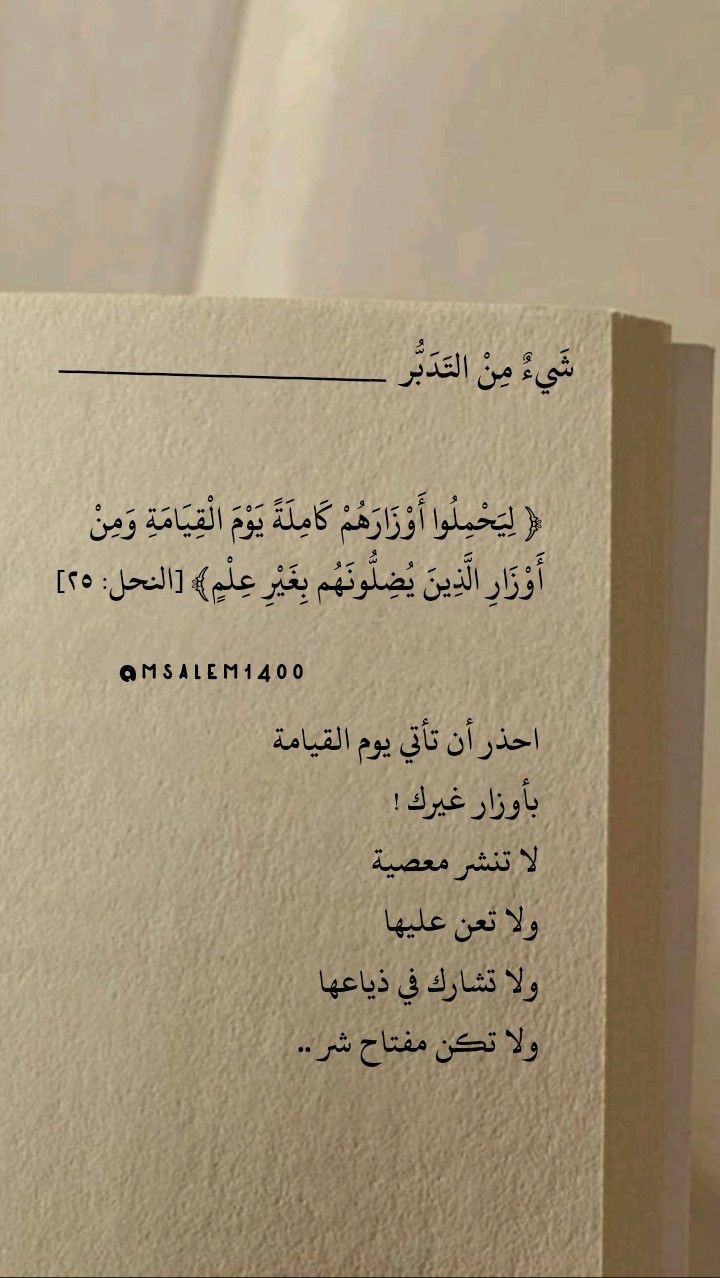 شَيءٌ مِنْ التَدَبُّر ـــــــــــــــــــــــــــــــــ
﴿ لِيَحْمِلُوا أَوْزَارَهُمْ كَامِلَةً يَوْمَ الْقِيَامَةِ وَمِنْ
أَوْزَارِ الَّذِينَ يُضِلُّونَهُم بِغَيْرِ عِلْمٍ﴾ [النحل: ٢٥]
@MSALEM1400
احذر أن تأتي يوم القيامة
بأوزار غيرك !
لا تنشر معصية
ولا تعن عليها
ولا تشارك في ذياعها
ولا تكن مفتاح شر ..